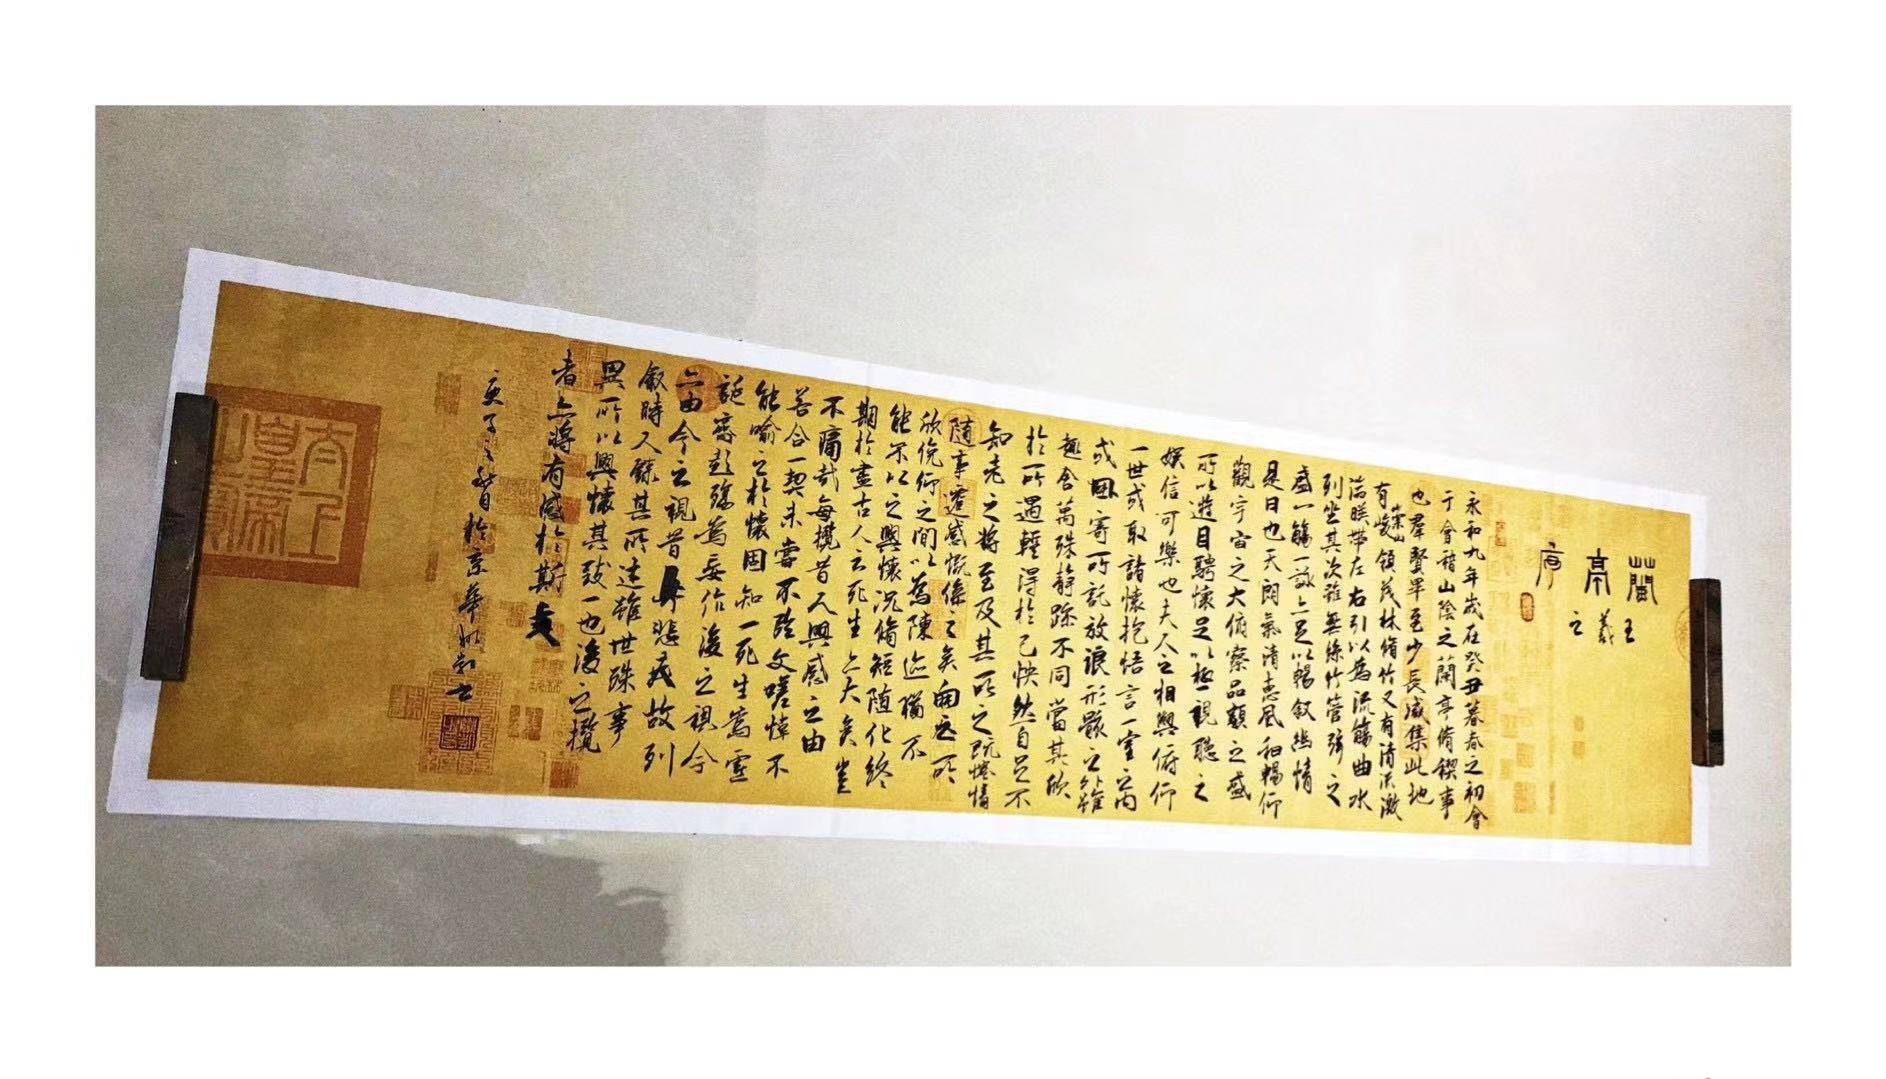 蘭亭序
王羲之
永和九年歲在癸丑暮春之初會
于會稽山陰之蘭亭脩禊事
也羣賢畢至少長咸集此地
有崇山峻領茂林脩竹又有清流激
湍暎帶左右引以為流觴曲水
列坐其次雖無絲竹管弦之
盛一觴一詠亦足以暢敘幽情
是日也天朗氣清惠風和暢仰
觀宇宙之大俯察品類之盛
所以遊目騁懷足以極視聽之
娛信可樂也夫人之相與俯仰
一世或取諸懷抱悟言一室之內
或因寄所託放浪形骸之外雖
趣舍萬殊靜躁不同當其欣
於所遇輕得於己怏然自足不
知老之將至及其所之既惓情
隨事遷感慨係之矣向之所
欣俛仰之間以為陳迹猶不
能不以之興懷況脩短隨化終
期於盡古人云死生亦大矣豈
不痛哉每攬昔人興感之由
若合一契未嘗不臨文嗟悼不
能喻之於懷固知一死生為虛
誕齊彭殤為妄作後之視今
亦由今之視昔悲夫故列
敘時人錄其所述雖世殊事
異所以興懷其致一也後之攬
者亦將有感於斯文
庚子之於京華
太上皇帝